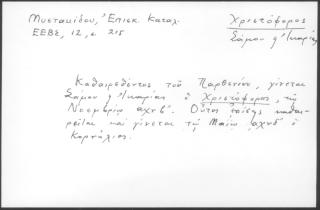 Μυστακίδου, Ἐπισκ. Καταλ.
ΕΕΒΣ, 12, σ. 215
Χριστόφορος
Σάμου & Ἰκαρίας
Καθαιρεθέντος τοῦ Παρθενίου, γίνεται
Σάμου & Ἰκαρίας ὁ Χριστόφορος, τῷ
Νοεμβρίῳ αχνβʹ. Οὗτος ἐπίσης καθαι-
ρεῖται καὶ γίνεται τῷ Μαΐῳ αχνδʹ ὁ
Κορνήλιος.